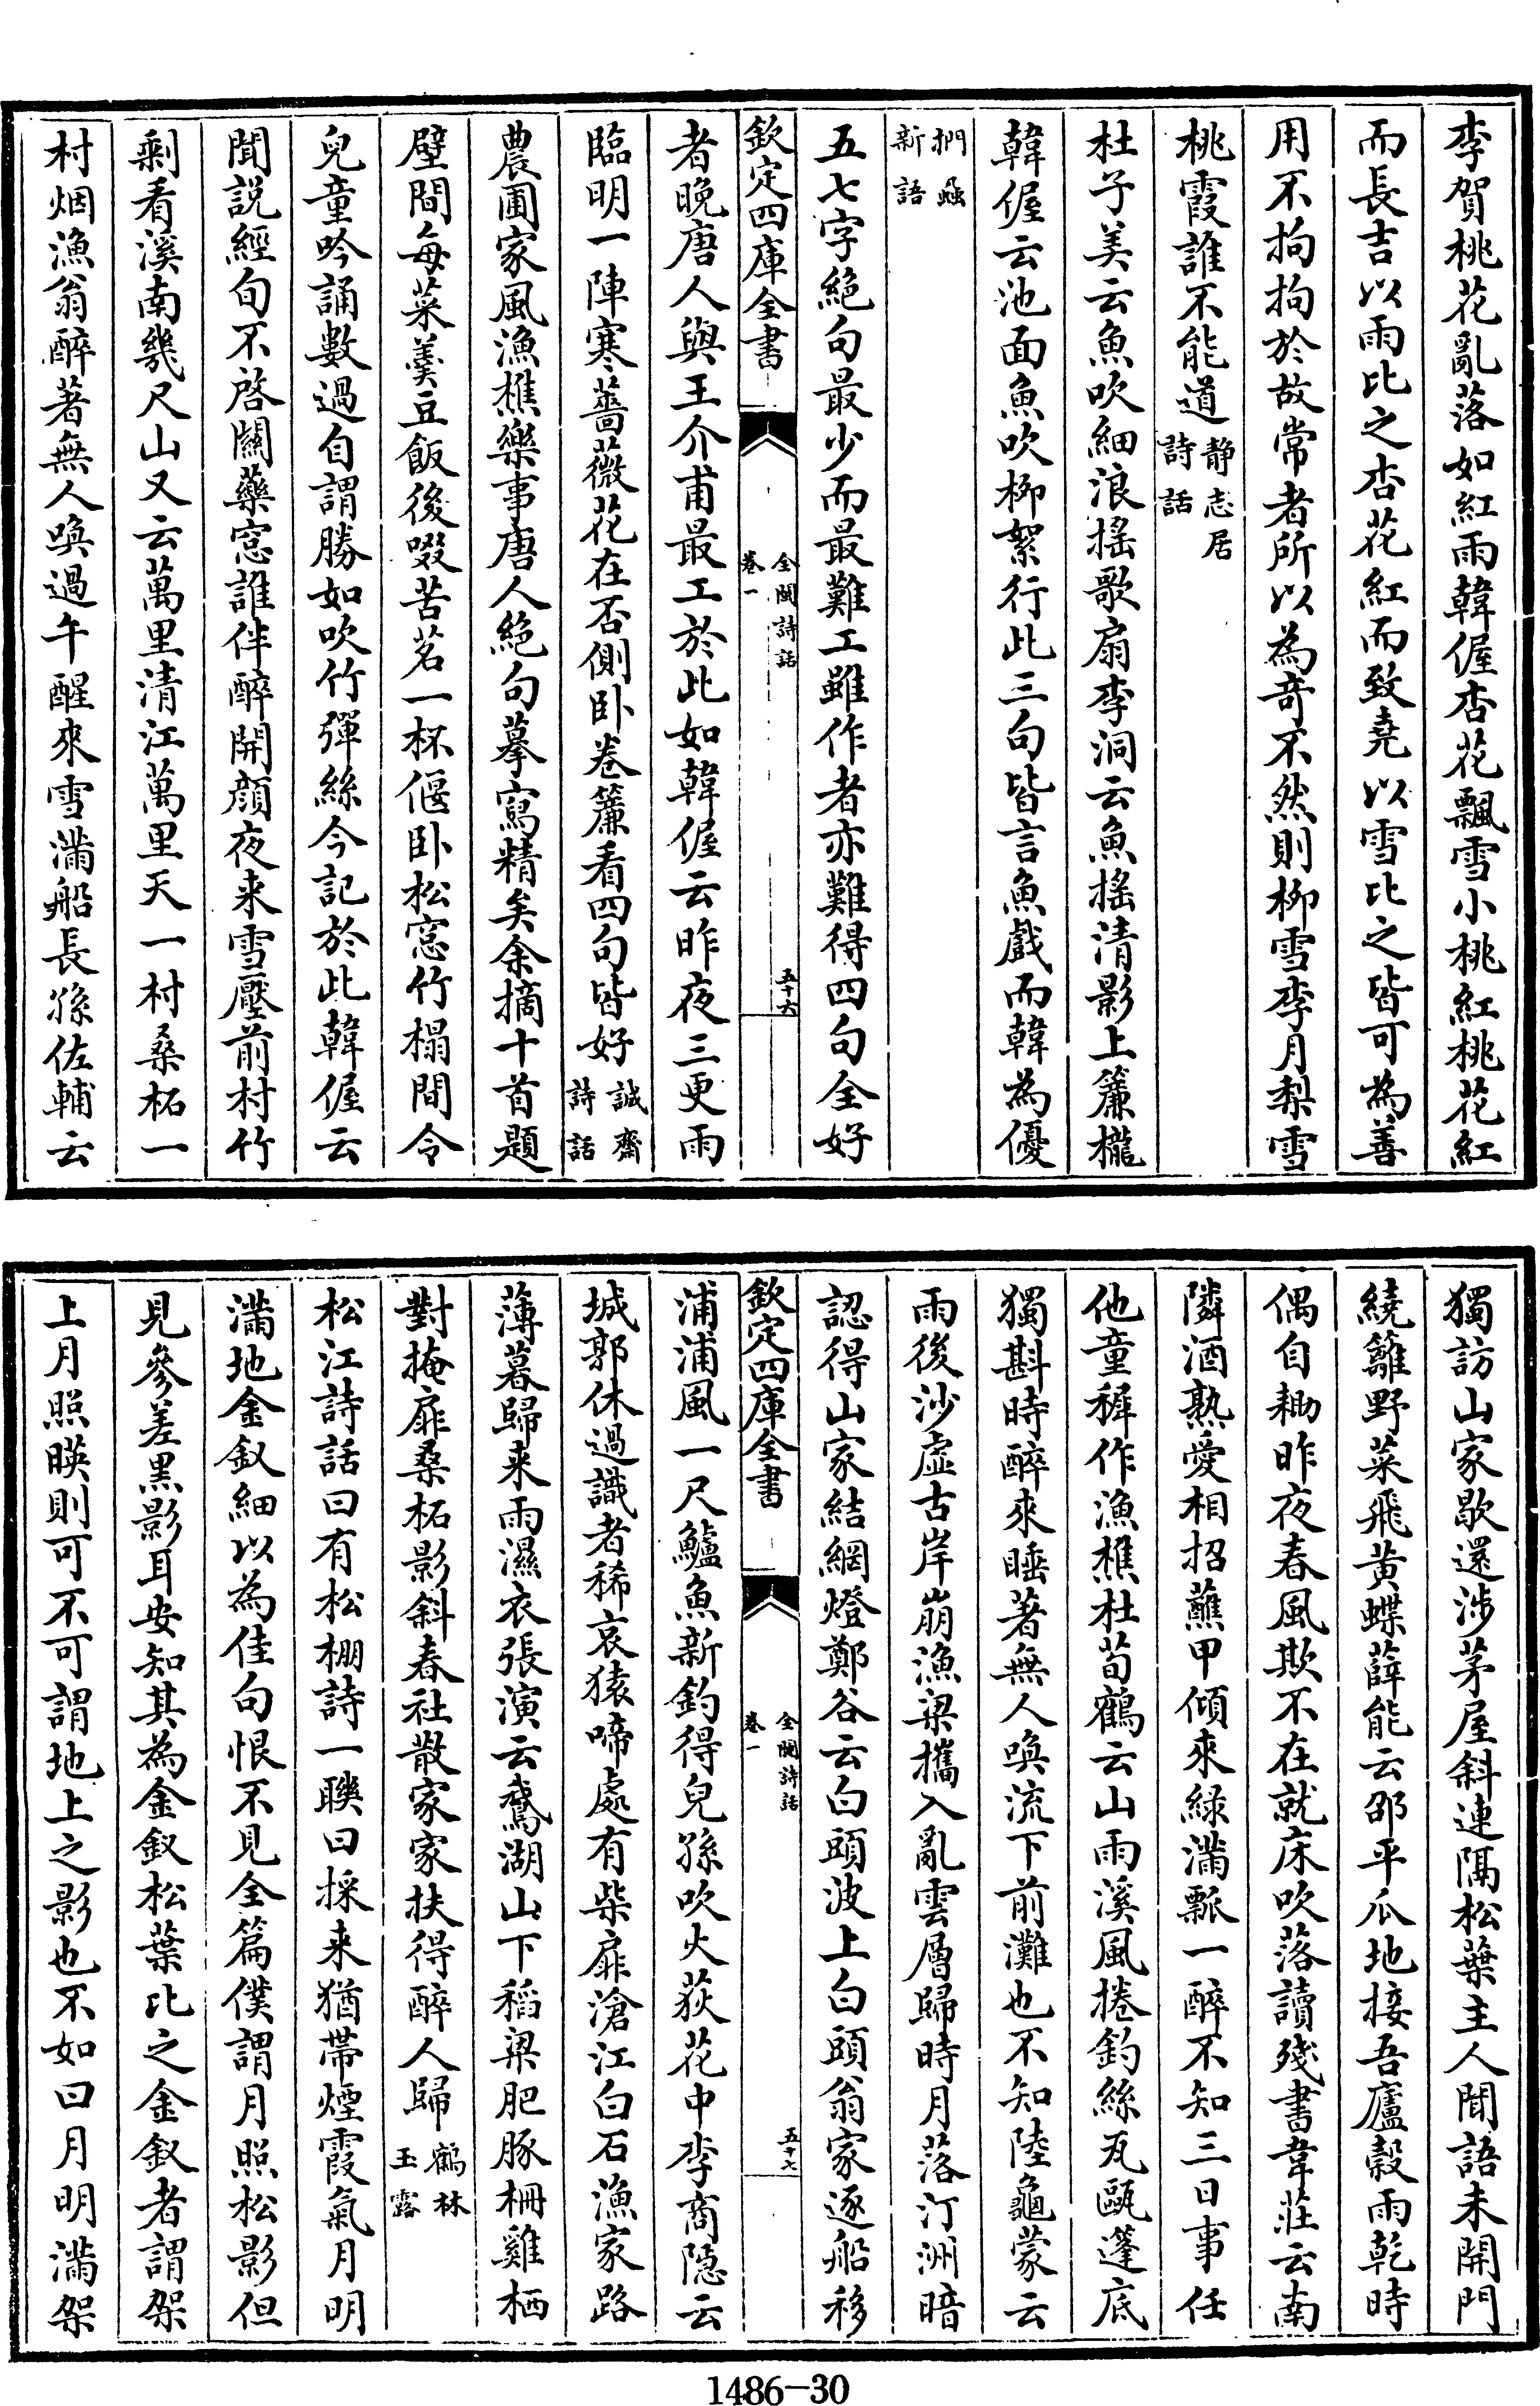 李賀桃花亂落如紅雨韓偓杏花飄雪小桃紅桃花紅
而長吉以雨比之杏花紅而致堯以雪比之皆可為善
用不拘拘於故常者所以為奇不然則柳雪李月梨雪
桃霞誰不能道静志居
詩話
杜子美云魚吹細浪搖歌扇李洞云魚搖清影上簾櫳
韓偓云池面魚吹柳絮行此三句皆言魚戲而韓為優
捫蝨
新語
五七字絶句最少而最難工雖作者亦難得四句全好
欽定四庫全書
全閩詩話
卷一
五十六
者晚唐人與王介甫最工於此如韓偓云昨夜三更雨
臨明一陣寒薔薇花在否側卧卷簾看四句皆好誠齋
詩話
農圃家風漁樵樂事唐人絶句摹寫精矣余摘十首題
壁間每菜羹豆飯後啜苦茗一杯偃卧松窓竹榻間令
兒童吟誦數過自謂勝如吹竹彈絲今記於此韓偓云
聞說經旬不啓關藥窓誰伴醉開顔夜来雪壓前村竹
剩看溪南幾尺山又云萬里清江萬里天一村桑柘一
村烟漁翁醉著無人喚過午醒來雪滿船長孫佐輔云
獨訪山家歇還涉茅屋斜連隔松葉主人聞語未開門
繞籬野菜飛黄蝶薛能云邵平瓜地接吾廬穀雨乾時
偶自耡昨夜春風欺不在就床吹落讀殘書韋莊云南
隣酒熟愛相招蘸甲傾來緑滿瓢一醉不知三日事任
他童穉作漁樵杜荀鶴云山雨溪風捲釣絲瓦甌篷底
獨斟時醉來睡著無人喚流下前灘也不知陸龜蒙云
雨後沙虛古岸崩漁梁攜入亂雲層歸時月落汀洲暗
認得山家結網燈鄭谷云白頭波上白頭翁家逐船移
欽定四庫全書
全閩詩話
卷一
五十七
浦浦風一尺鱸魚新釣得兒孫吹火荻花中李商隱云
城郭休過識者稀哀猿啼處有柴扉滄江白石漁家路
薄暮歸来雨濕衣張演云鵞湖山下稻粱肥豚柵雞栖
對掩扉桑柘影斜春社散家家扶得醉人歸鶴林
玉露
松江詩話曰有松棚詩一聨曰採来猶帶煙霞氣月明
滿地金釵細以為佳句恨不見全篇僕謂月照松影但
見參差黒影耳安知其為金釵松葉比之金釵者謂架
上月照暎則可不可謂地上之影也不如曰月明滿架
1486-30